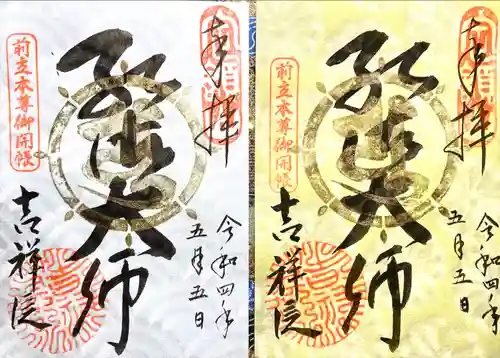 奉拝
前立本尊御開帳
弘法大師
令和四年
五月五日
吉祥院
奉拝
前立本尊御開帳
弘法大師
令和四年
五月五日
吉祥院